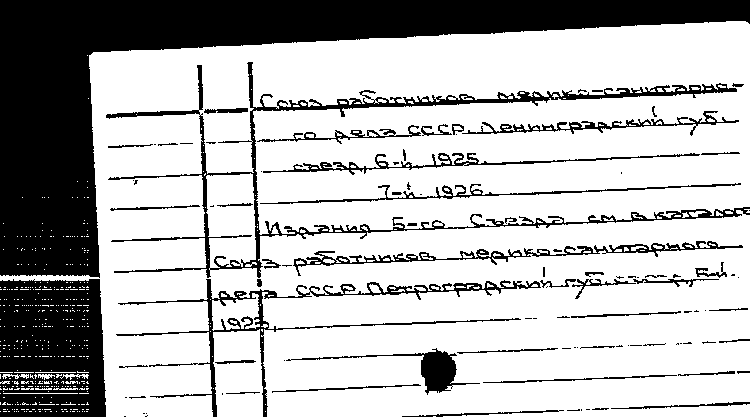 Союз работников медико-санитарно-
го дела СССР. Ленинградский губ.
съезд, 6-й. 1925.
7-й. 1926.
Издания 5-го Съезда см. в каталоге
Союз работников медико-санитарного
дела СССР. Петроградский губ. съезд, 5-й.
1923,